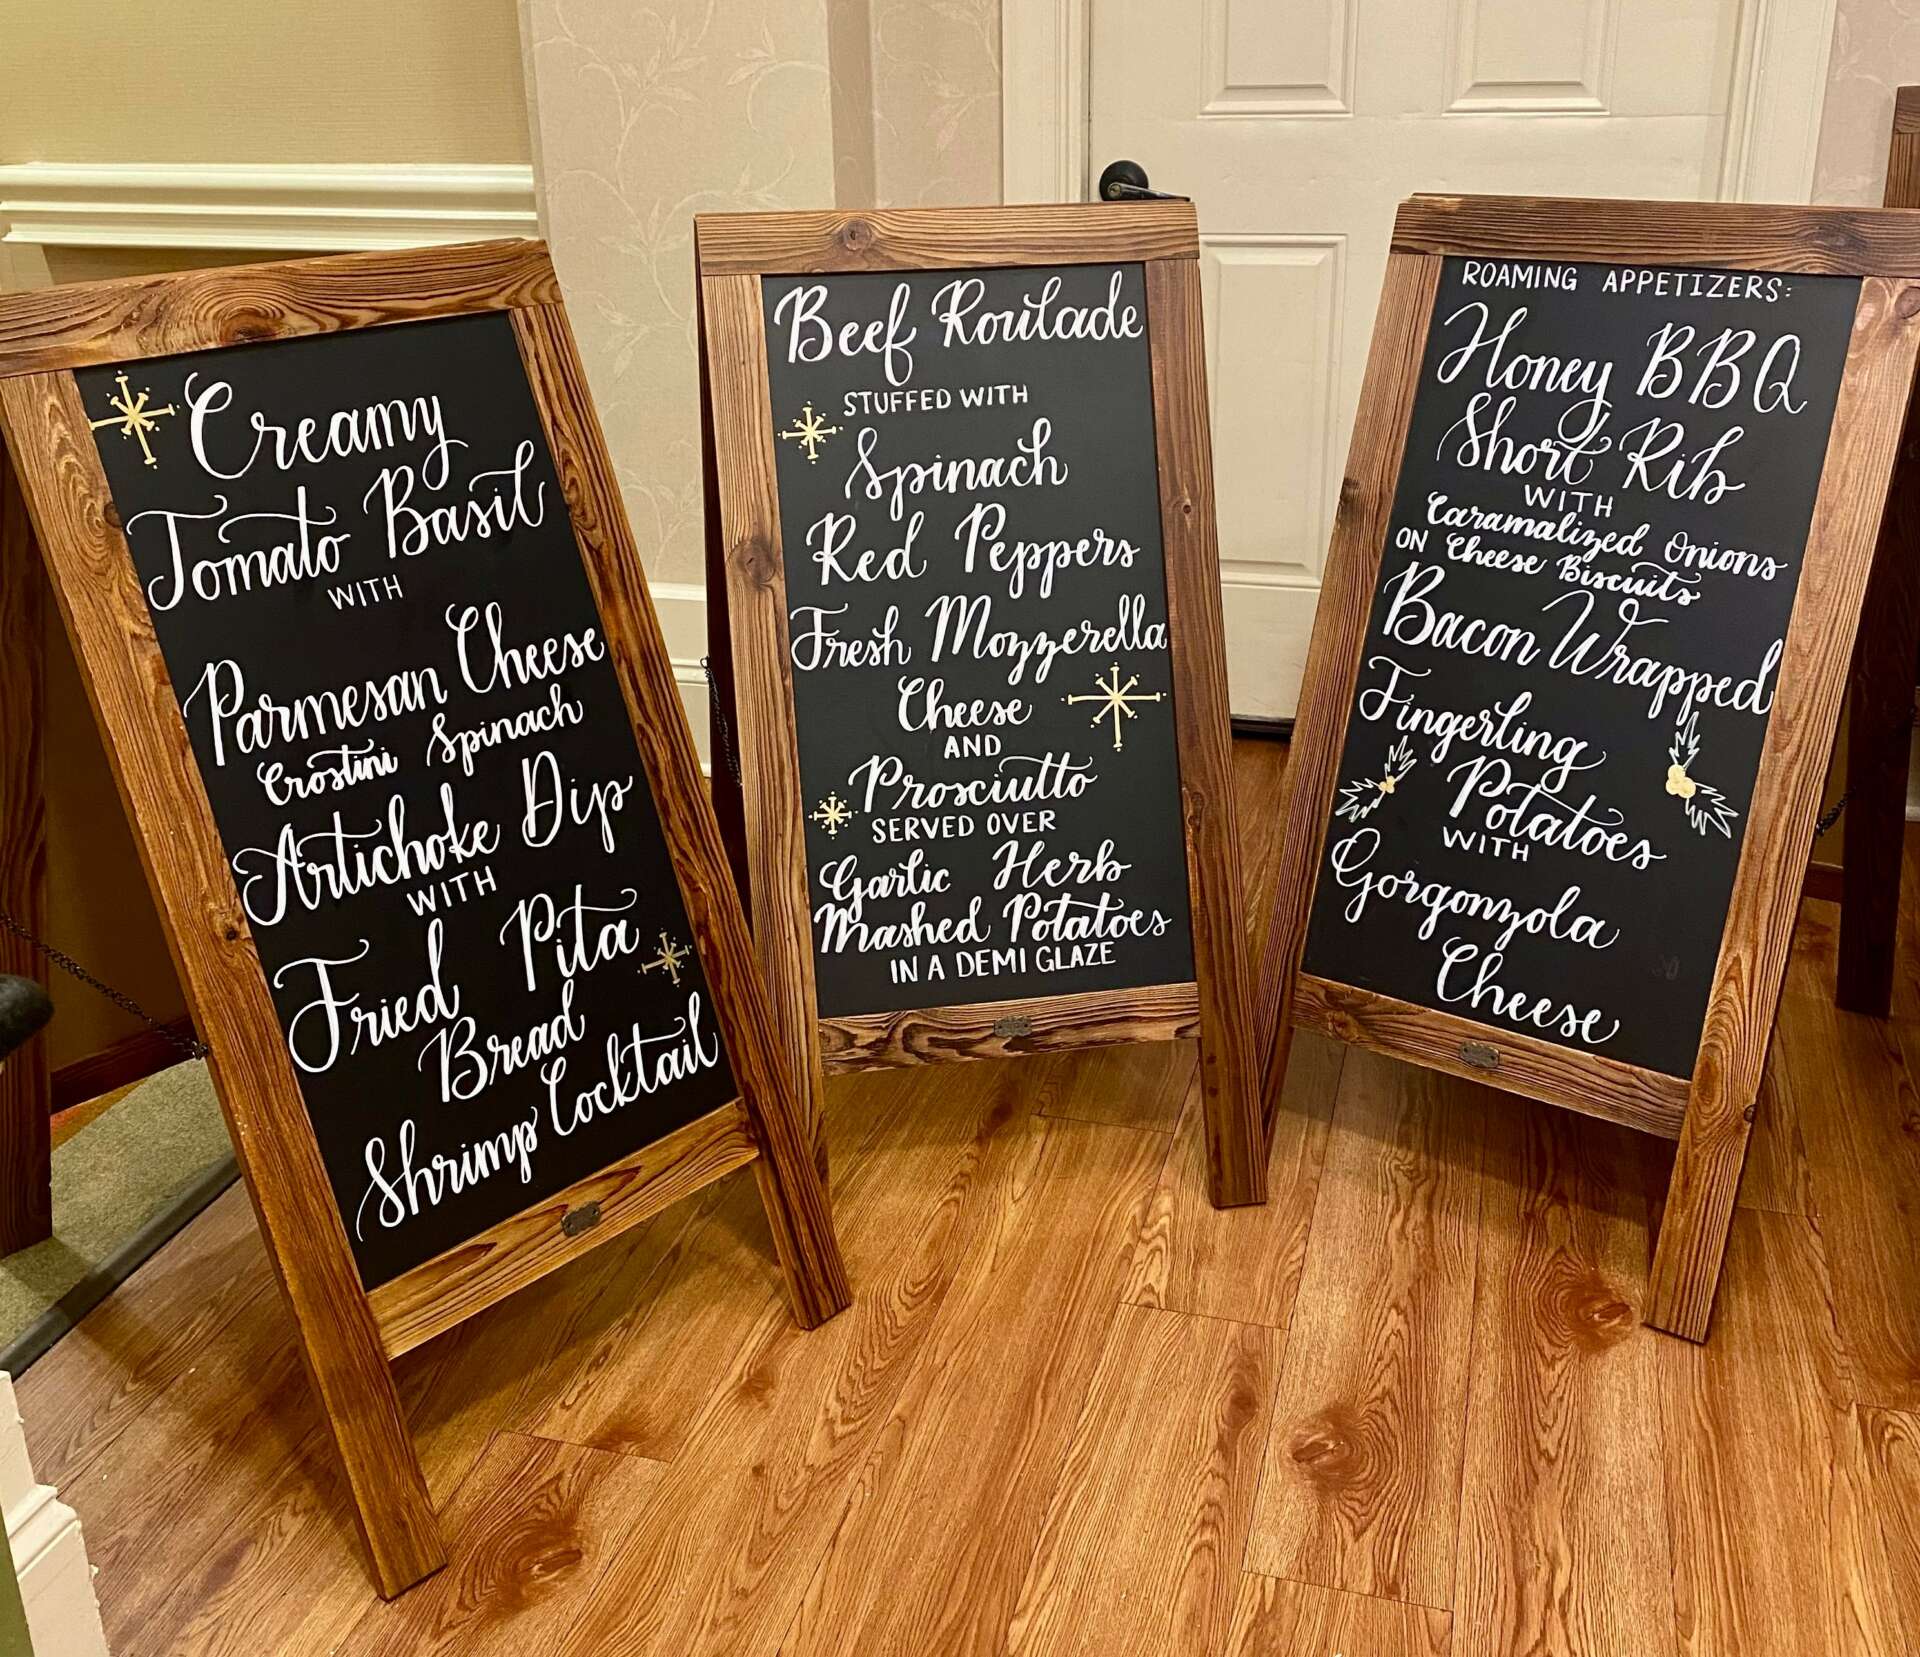 Creamy
Tomato Basil
WITH
Parmesan Cheese
Crostini Spinach
Artichoke Dip
WITH
Fried Pita
Bread
Shrimp Cocktail
Beef Roulade
STUFFED WITH
Spinach
Red Peppers
Fresh Mozzerella
Cheese
AND
Prosciutto
SERVED OVER
Garlic Herb
Mashed Potatoes
IN A DEMI GLAZE
ROAMING APPETIZERS:
Honey BBQ
Short Rib
WITH
Caramalized Onions
ON Cheese Biscuits
Bacon Wrapped
Fingerling
Potatoes
WITH
Gorgonzola
Cheese